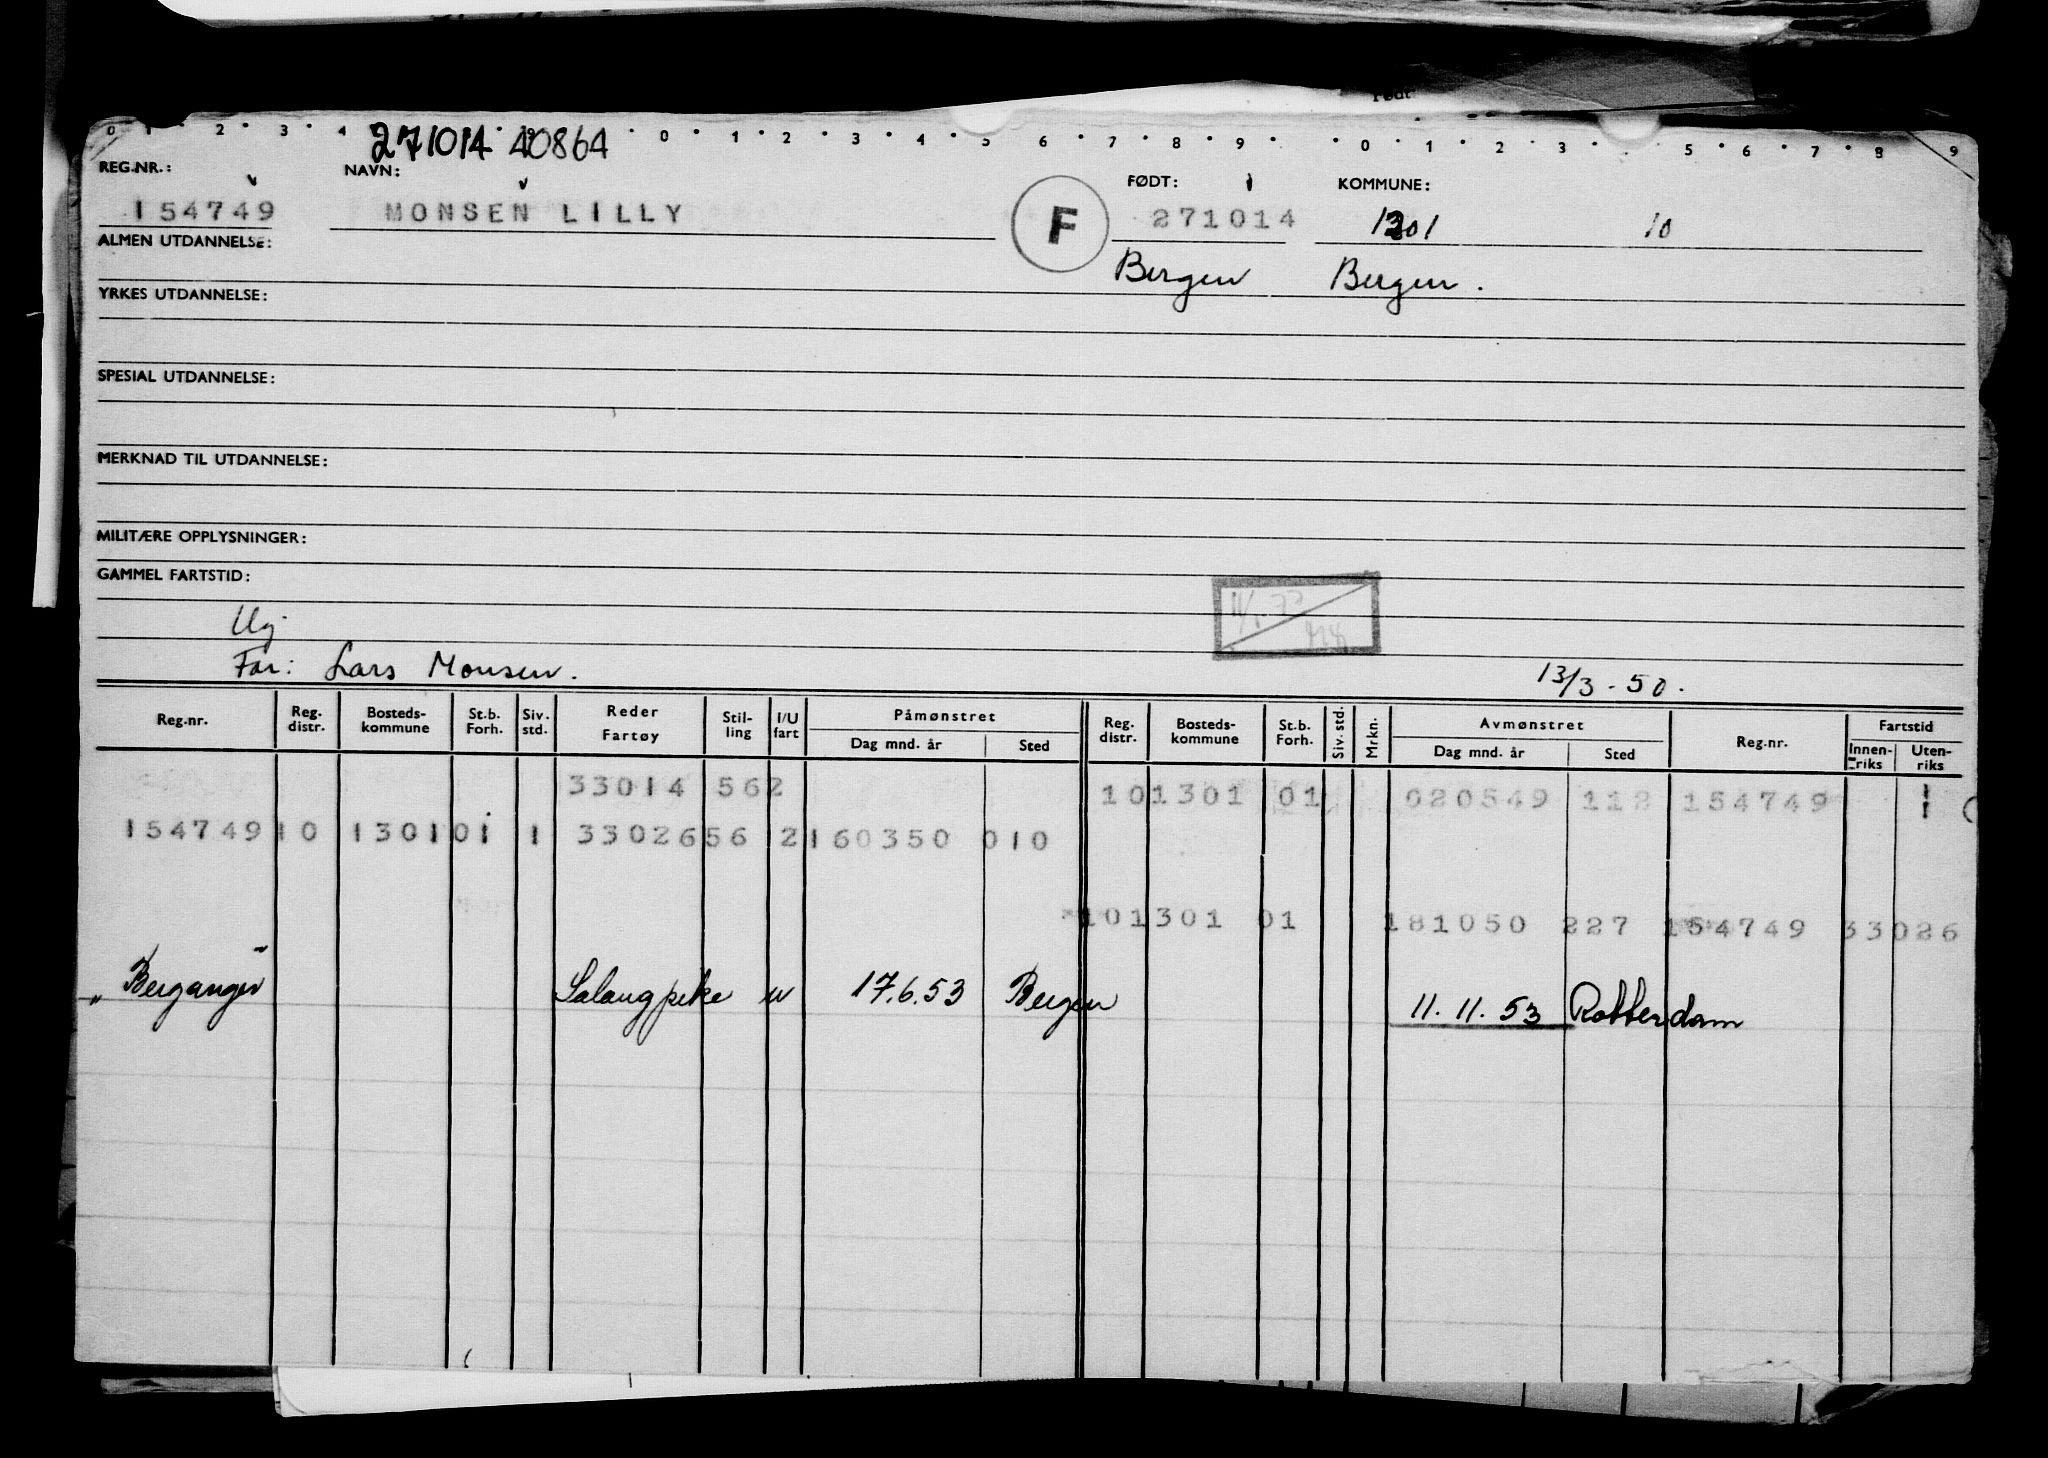 Født
0 1 2 3 4 0 1 2 3 4 5 6 7 8 9 0 1 2 3 5 6 7 8 9
271014 40864
REG.NR.: NAVN: FØDT: KOMMUNE:
154749 MONSEN LILLY F 271014 1301 10
ALMEN UTDANNELSE:
Bergen Bergen.
YRKES UTDANNELSE:
SPESIAL UTDANNELSE:
MERKNAD TIL UTDANNELSE:
MILITÆRE OPPLYSNINGER:
GAMMEL FARTSTID:
Ug
Far: Lars Monsen.
13/3-50.
Reg.nr. Reg. distr. Bosteds-kommune St.b. Forh. Siv. std. Reder Fartøy Stil-ling I/U fart Påmønstret Dag mnd. år Sted Reg. distr. Bosteds-kommune St.b. Forh. Siv. std. Mrkn. Avmønstret Dag mnd. år Sted Reg.nr. Fartstid Innen-riks Uten-riks
33014 562 101301 01 020549 112 154749 1
154749 10 1301 01 1 33026 56 2 160350 010
101301 01 181050 227 154749 33026
"Berganger" Salongpike u 17.6.53 Bergen 11.11.53 Rotterdam